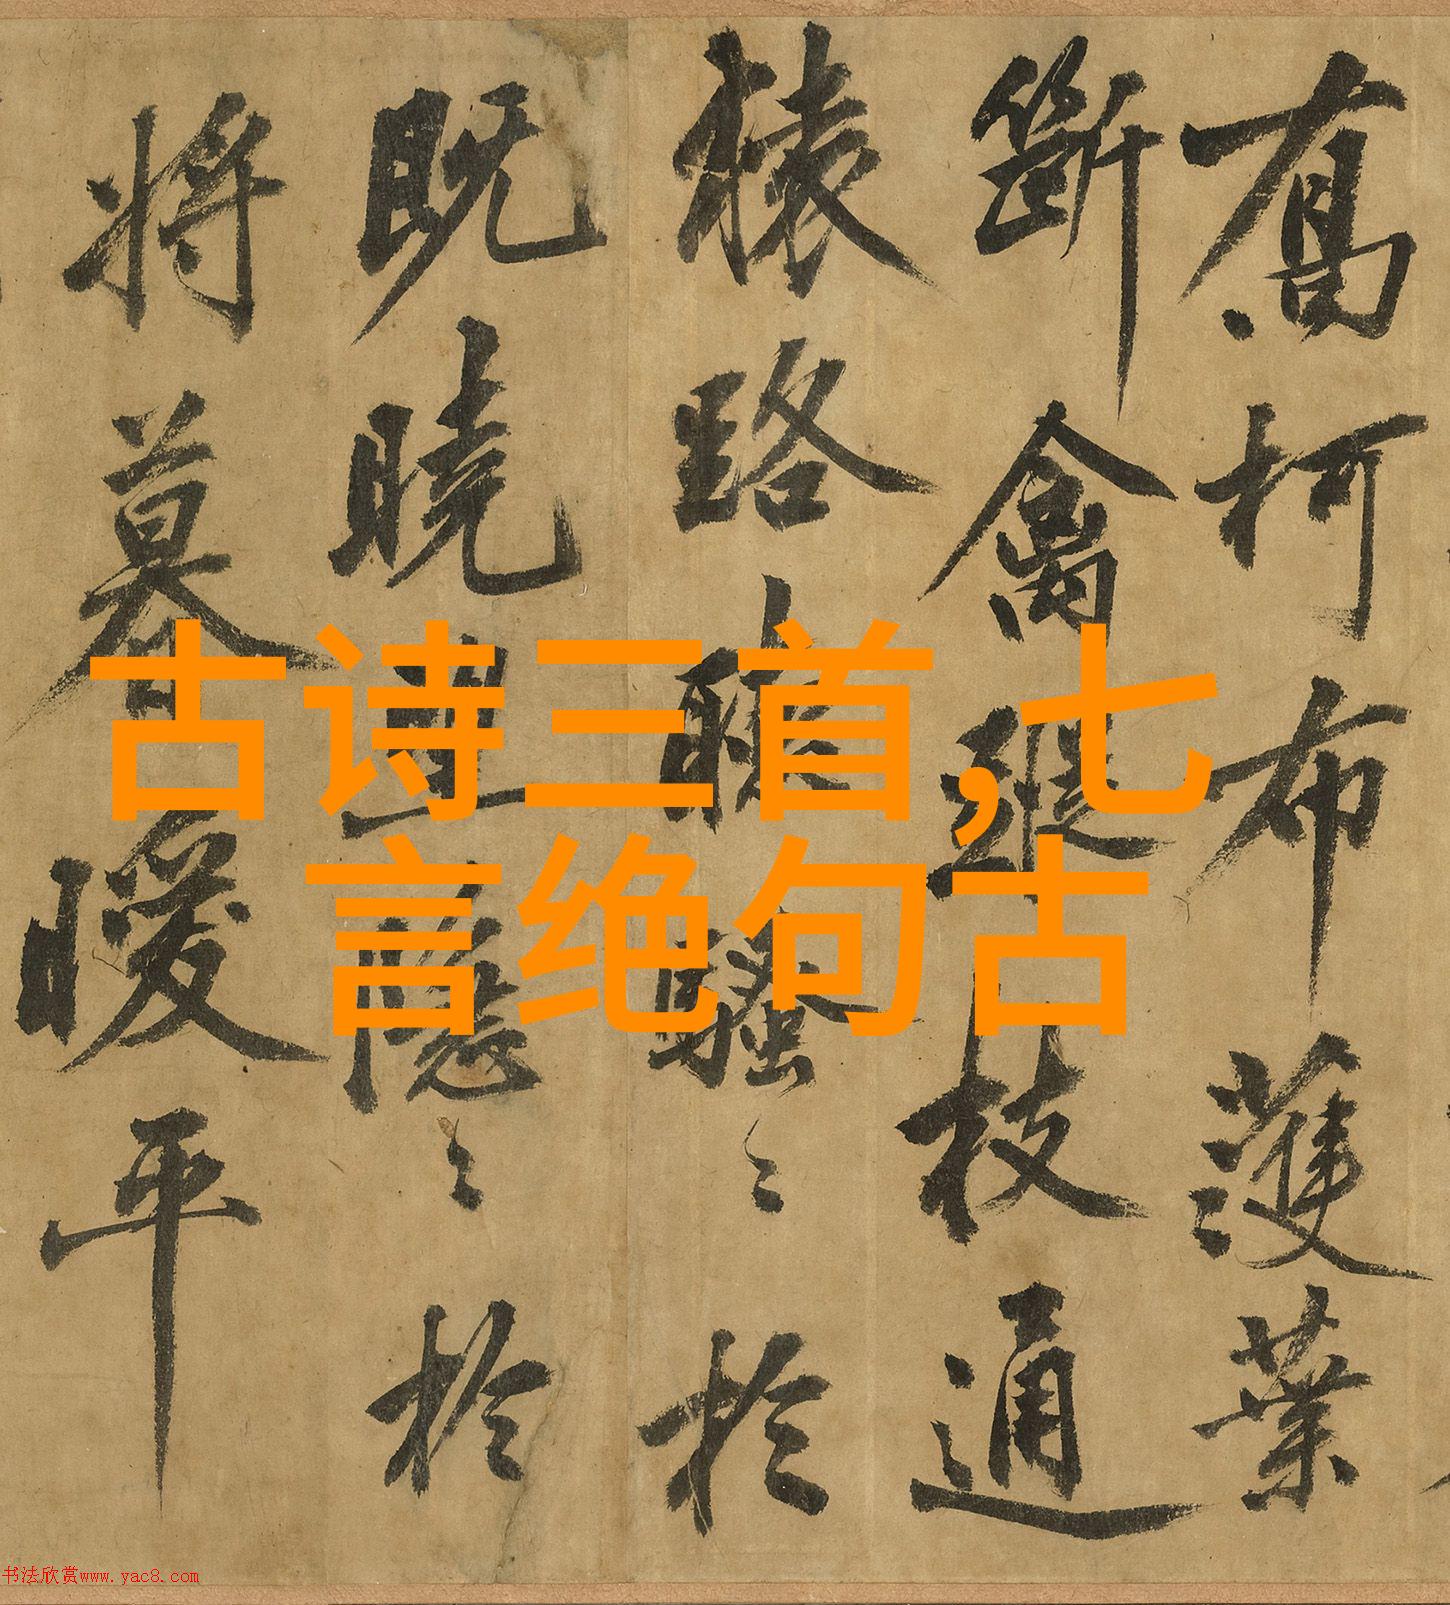 古诗三首,七
言绝句古
柯布濩葉
斷禽枝通
猿路聽騷〻於
既曉隱〻於
將暮曖平
书法欣赏www.yac8.com